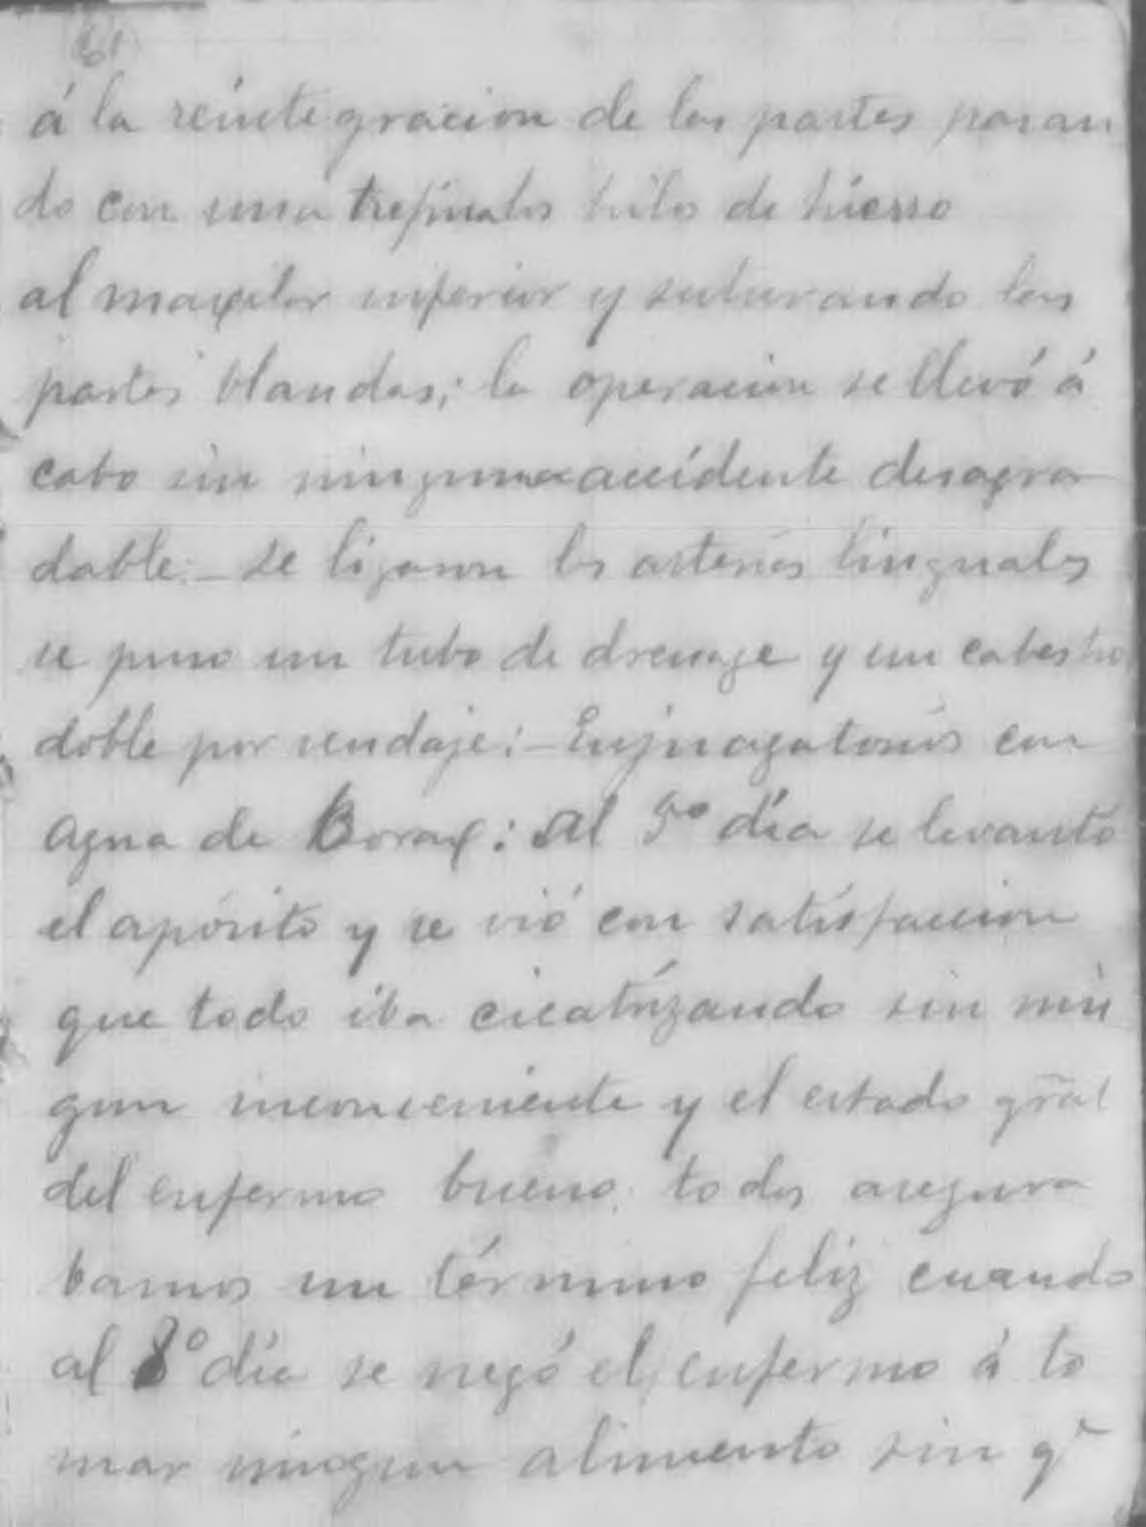 61
á la reintegracion de las partes pasan
do con una trefina los hilos de hierro
al maxilar inferior y suturando las
partes blandas; la operacion se llevó á
cabo sin ningun accidente desagra
dable:_ se ligaron las arterias linguales
se puso un tubo de drenage y un cabestro
doble por vendaje:_ Enjuagatorios con
agua de Borax: al 5º día se levantó
el aposito y se vió con satisfaccion
que todo iba cicatrizando sin nin
gun inconveniente y el estado gral
del enfermo bueno. todos asegura
bamos un término feliz cuando
al 8º día se negó el enfermo á to
mar ningun alimento sin qe